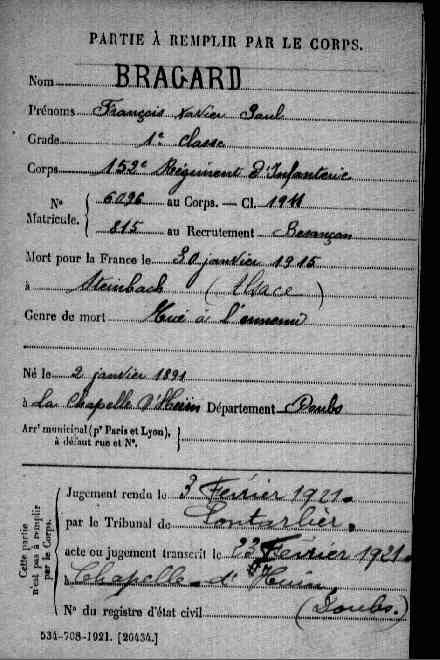 PARTIE À REMPLIR PAR LE CORPS.
Nom BRAGARD
Prénoms François Xavier Paul
Grade 1e classe
Corps 152e Régiment d'Infanterie
No Matricule. { 6096 au Corps. — Cl. 1911
815 au Recrutement Besançon
Mort pour la France le 30 janvier 1915
à Steinbach (Alsace)
Genre de mort Tué à l'ennemi
Né le 2 janvier 1891
à La Chapelle d'Huin Département Doubs
Arrt municipal (pr Paris et Lyon),
à défaut rue et No.
Cette partie n'est pas à remplir par le Corps.
Jugement rendu le 3 Février 1921.
par le Tribunal de Pontarlier.
acte ou jugement transcrit le 22 Février 1921.
à Chapelle-d'Huin
No du registre d'état civil (Doubs.)
534-708-1921. [26434.]